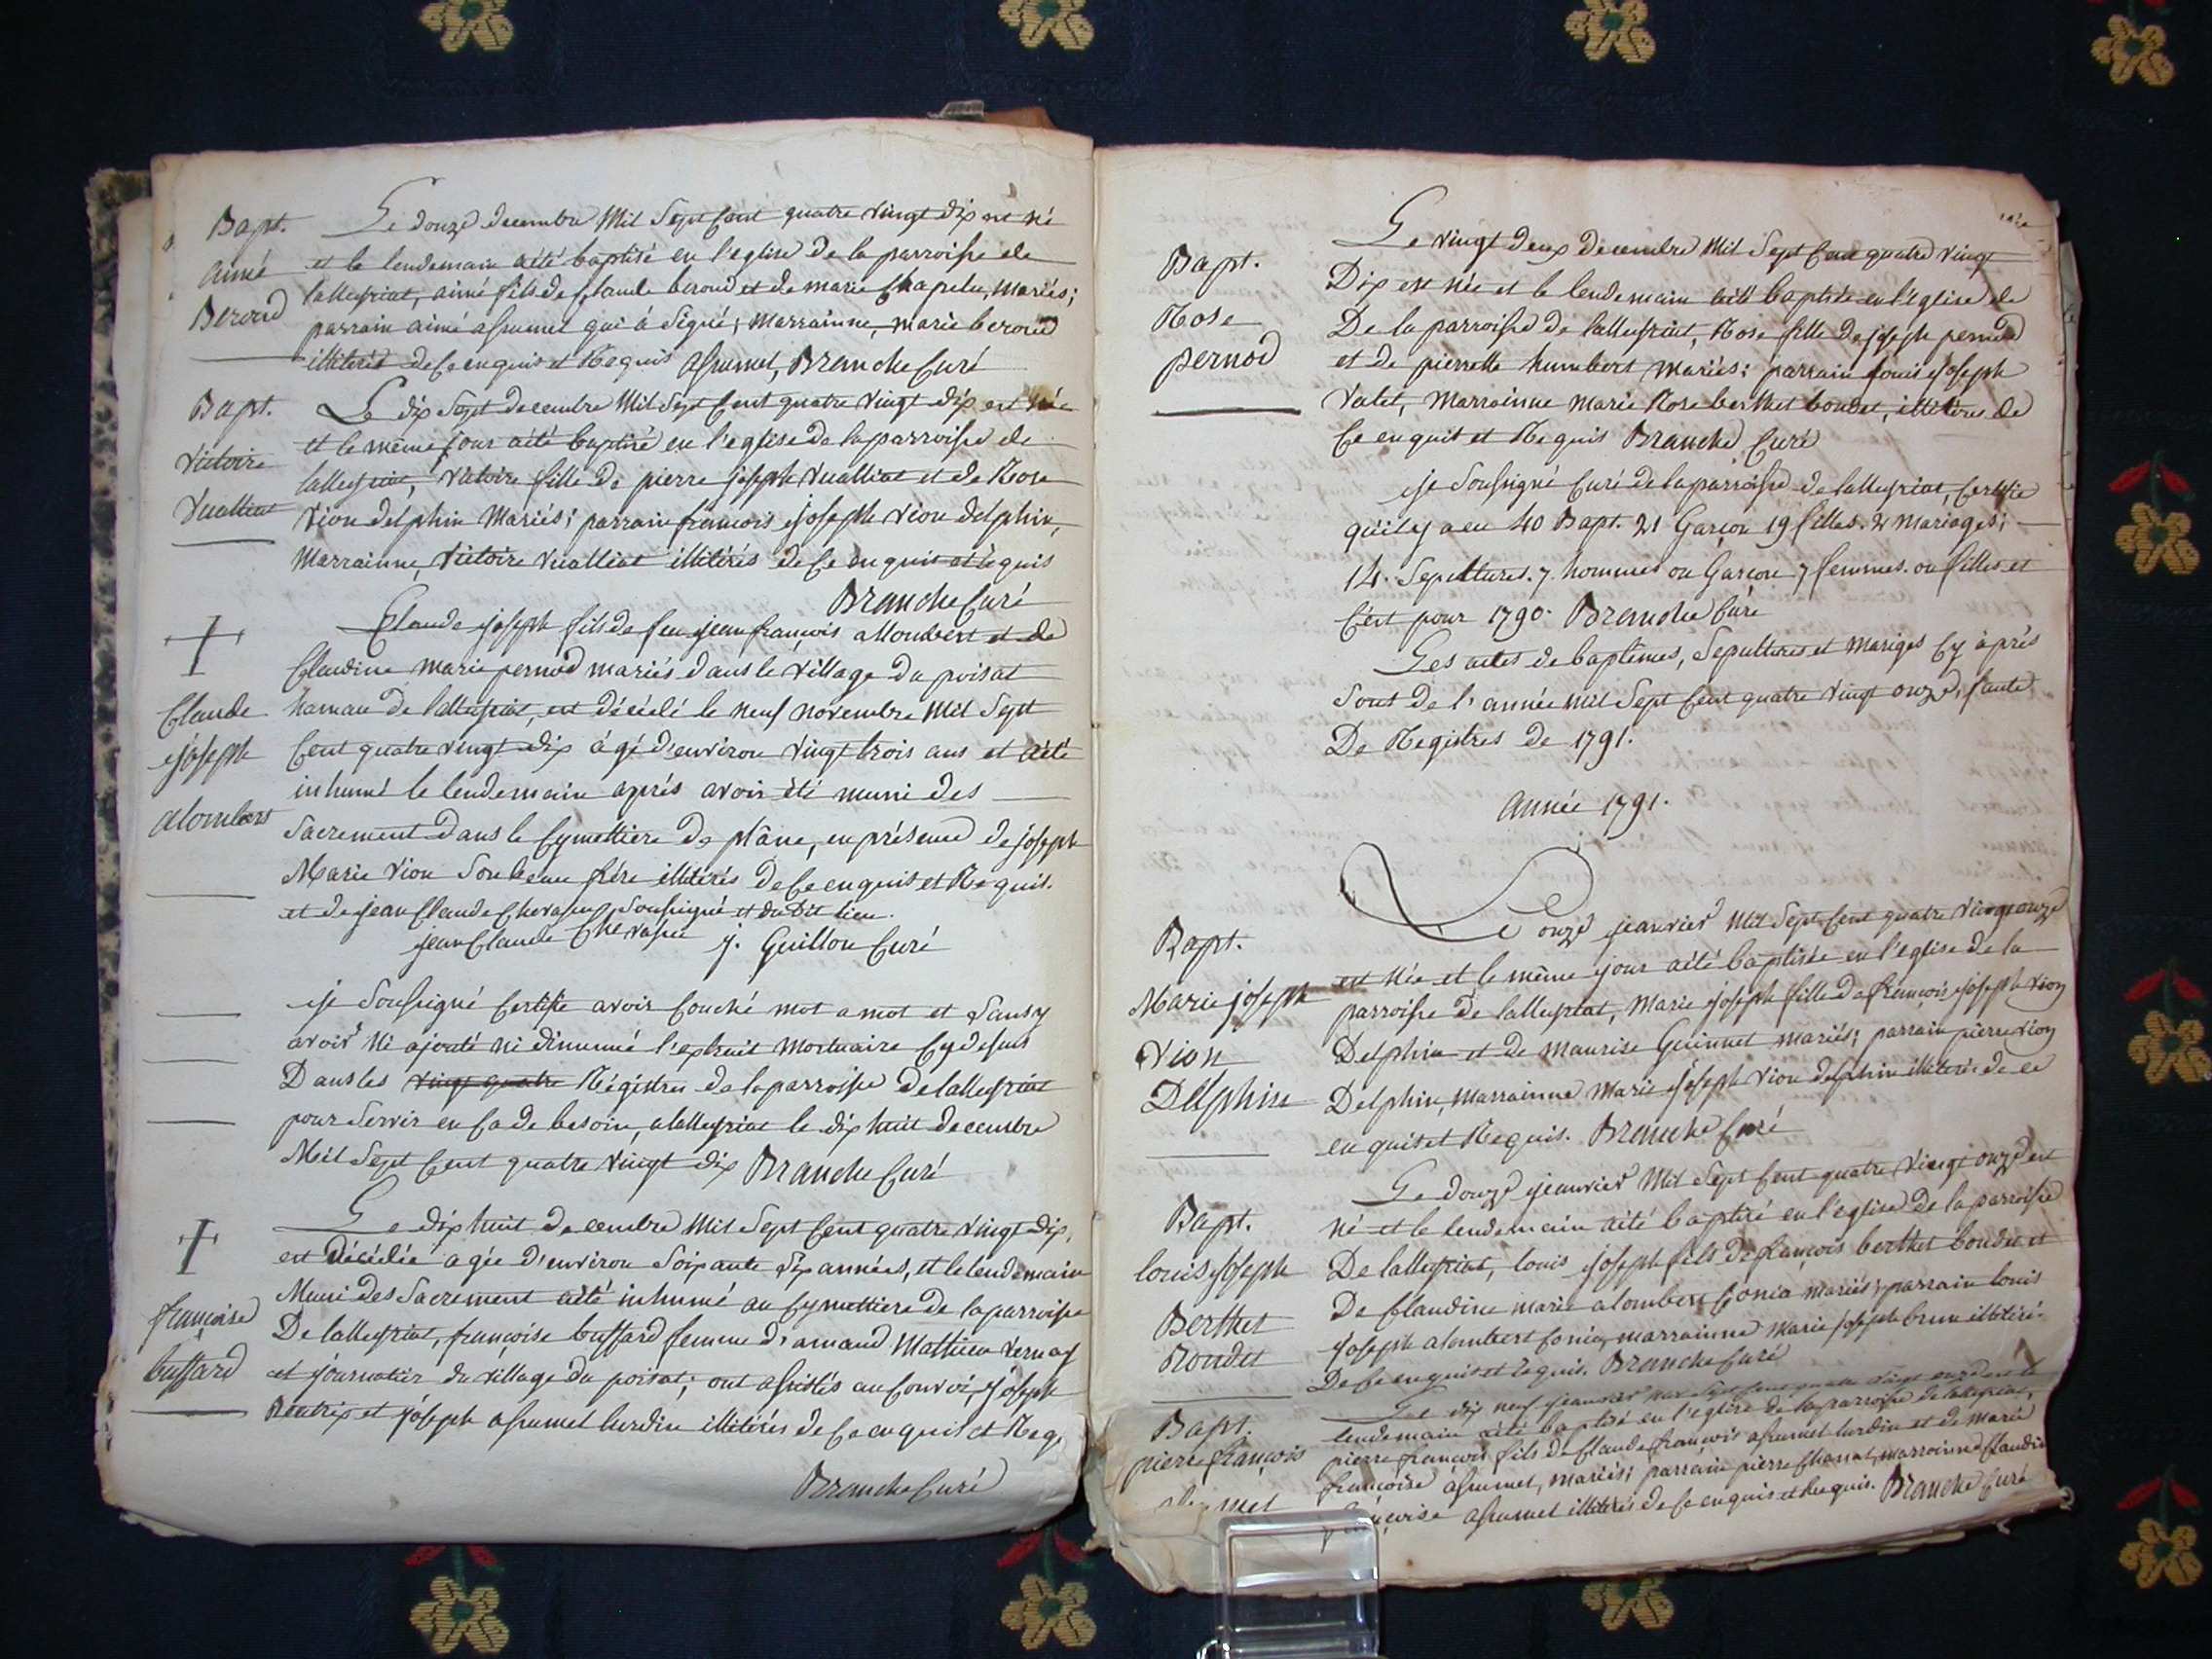 Bapt.
aimé
Beroud
Le douze decembre Mil Sept Cent quatre vingt dix est né
et le lendemain aété baptisé en l'eglise de la parroisse de
lalleyriat, aimé fils de Claude beroud et de marie Chapelu, mariés;
parrain aimé assumel qui à signé; marrainne, marie beroud
illiterée de Ce enquis et Requis assumel, Branche Curé
Bapt.
victoire
vualliat
Le dix Sept decembre Mil Sept Cent quatre vingt dix est née
et le même jour aété baptisé en l'eglise de la parroisse de
lalleyriat, victoire fille de pierre joseph vualliat et de Rose
vion delphin Mariés; parrain françois joseph vion delphin,
Marrainne, victoire vualliat illiterés de Ce enquis et requis
Branche Curé
Claude
joseph
alombert
Claude joseph fils de feu jean françois allombert et de
Claudine marie pernod mariés dans le village du poisat
hamau de lalleyriat, est décédé le neuf novembre Mil Sept
Cent quatre vingt dix àgé d'environ vingt trois ans et aété
inhumé le lendemain aprés avoir été muni des
Sacrement dans le Cymettiere de plâne, en présence de joseph
Marie vion Son beau frére illiterés de Ce enquis et Requis.
et de jean Claude Chevassu, Soussigné et dudit lieu.
jean Claude Chevassu j. Guillon Curé
je Soussigné Certifie avoir Couché mot a mot et Sans y
avoir ni ajouté ni diminué l'extrait mortuaire Cy dessus
Dans les vingt quatre Régistres de la parroisse de lalleyriat
pour Servir en Ca de besoin, a lalleyriat le dix huit decembre
Mil Sept Cent quatre vingt dix Branche Curé
françoise
buffard
Le dix huit decembre Mil Sept Cent quatre vingt dix,
est décédée agée d'environ Soixante dix années, et le lendemain
Muni des Sacrement aété inhumé au Cymettiere de la parroise
De lalleyriat, françoise buffard femme d'amand Mathieu vernay
et journatier du village du poisat; ont assistés au Convoi, joseph
Béatrix et joseph assumel lurdin illiterés de Ce enquis et Req.
Branche Curé
Bapt.
Rose
pernod
Le vingt deux decembre Mil Sept Cent quatre vingt
Dix est née et le lendemain aété baptisée en l'eglise de
De la parroisse de lalleyriat, Rose fille de joseph pernod
et de pierrette humbert mariés; parrain Louis joseph
valet, marrainne marie Rose berthet bondet, illiterés de
Ce enquis et Requis Branche Curé
je Soussigné Curé de la parroisse de lalleyriat, Certifie
qu'il y a eu 40 Bapt. 21 Garçon 19 filles. 2 mariages;
14. Sepultures. 7 hommes ou Garçon 7 femmes. ou filles et
C'est pour 1790. Branche Curé
Les actes de baptêmes, Sepultures et mariges Cy àprés
Sont de l'année mil Sept Cent quatre vingt onze, faute
De Registres de 1791.
année 1791.
Bapt.
Marie joseph
vion
Delphin
Le onze jeanvier Mil Sept Cent quatre vingt onze
est née et le même jour aété baptisée en l'eglise de la
parroisse de lalleyriat, Marie joseph fille de françois joseph vion
Delphin et de maurise Guinnet mariés; parrain pierre vion
Delphin, marrainne Marie joseph vion delphin illiterée de ce
enquis et Requis. Branche Curé
Bapt.
louis joseph
Berthet
Bondet
Le douze jeanvier Mil Sept Cent quatre vingt onze est
né et le lendemain aété baptisé en l'eglise de la parroisse
De lalleyriat, louis joseph fils de françois berthet bondet et
De Claudine marie alombert Gonia mariés; parrain louis
joseph alombert Gonia, marrainne Marie joseph brun illiteré.
De Ce enquis et requis. Branche Curé
Bapt.
pierre françois
Le dix neuf jeanvier Mil Sept Cent quatre vingt onze est né le
lendemain aété baptisé en l'eglise de la parroisse de lalleyriat,
pierre françois fils de Claude françois assumel lurdin et de marie
françoise assumel, mariés; parrain pierre Chanal, marrainne Claudine
françoise assumel illiterés de Ce enquis et Requis. Branche Curé